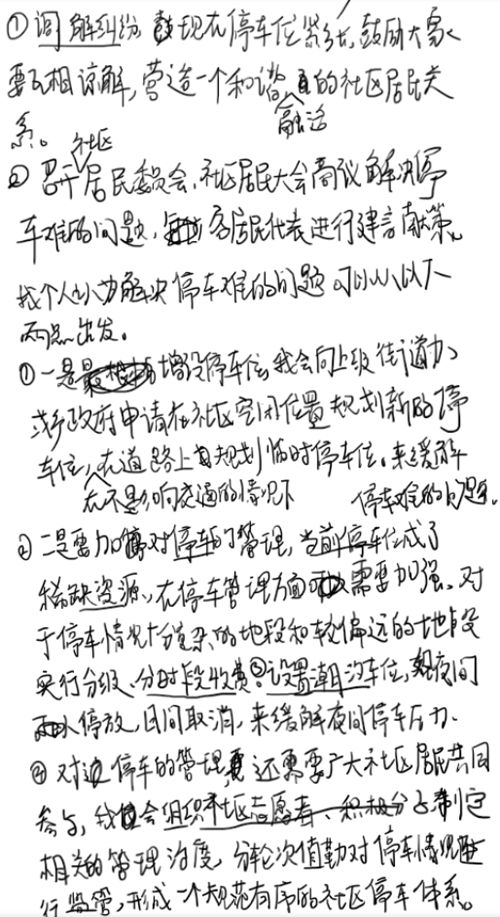 ①调解纠纷 现在停车位紧张,鼓励大家
要互相谅解,营造一个和谐融洽的社区居民关
系。
②召开社区居民委员会、社区居民大会商议解决停
车难的问题,各居民代表进行建言献策。
我个人认为解决停车难的问题可以从以下
两点出发。
①一是增设停车位,我会向上级街道办
或乡政府申请在社区空闲位置规划新的停
车位,在不影响交通的情况下在道路上规划临时停车位。来缓解
停车难的问题。
②二是要加强对停车的管理,当前停车位成了
稀缺资源,在停车管理方面需要加强。对
于停车情况复杂的地段和较偏远的地段
实行分级、分时段收费②设置潮汐车位,夜间
停放,日间取消,来缓解夜间停车压力。
③对于停车的管理,还需要广大社区居民共同
参与,我会组织社区志愿者、积极分子制定
相关的管理制度,分轮次值勤对停车情况进
行监管,形成一个规范有序的社区停车体系。